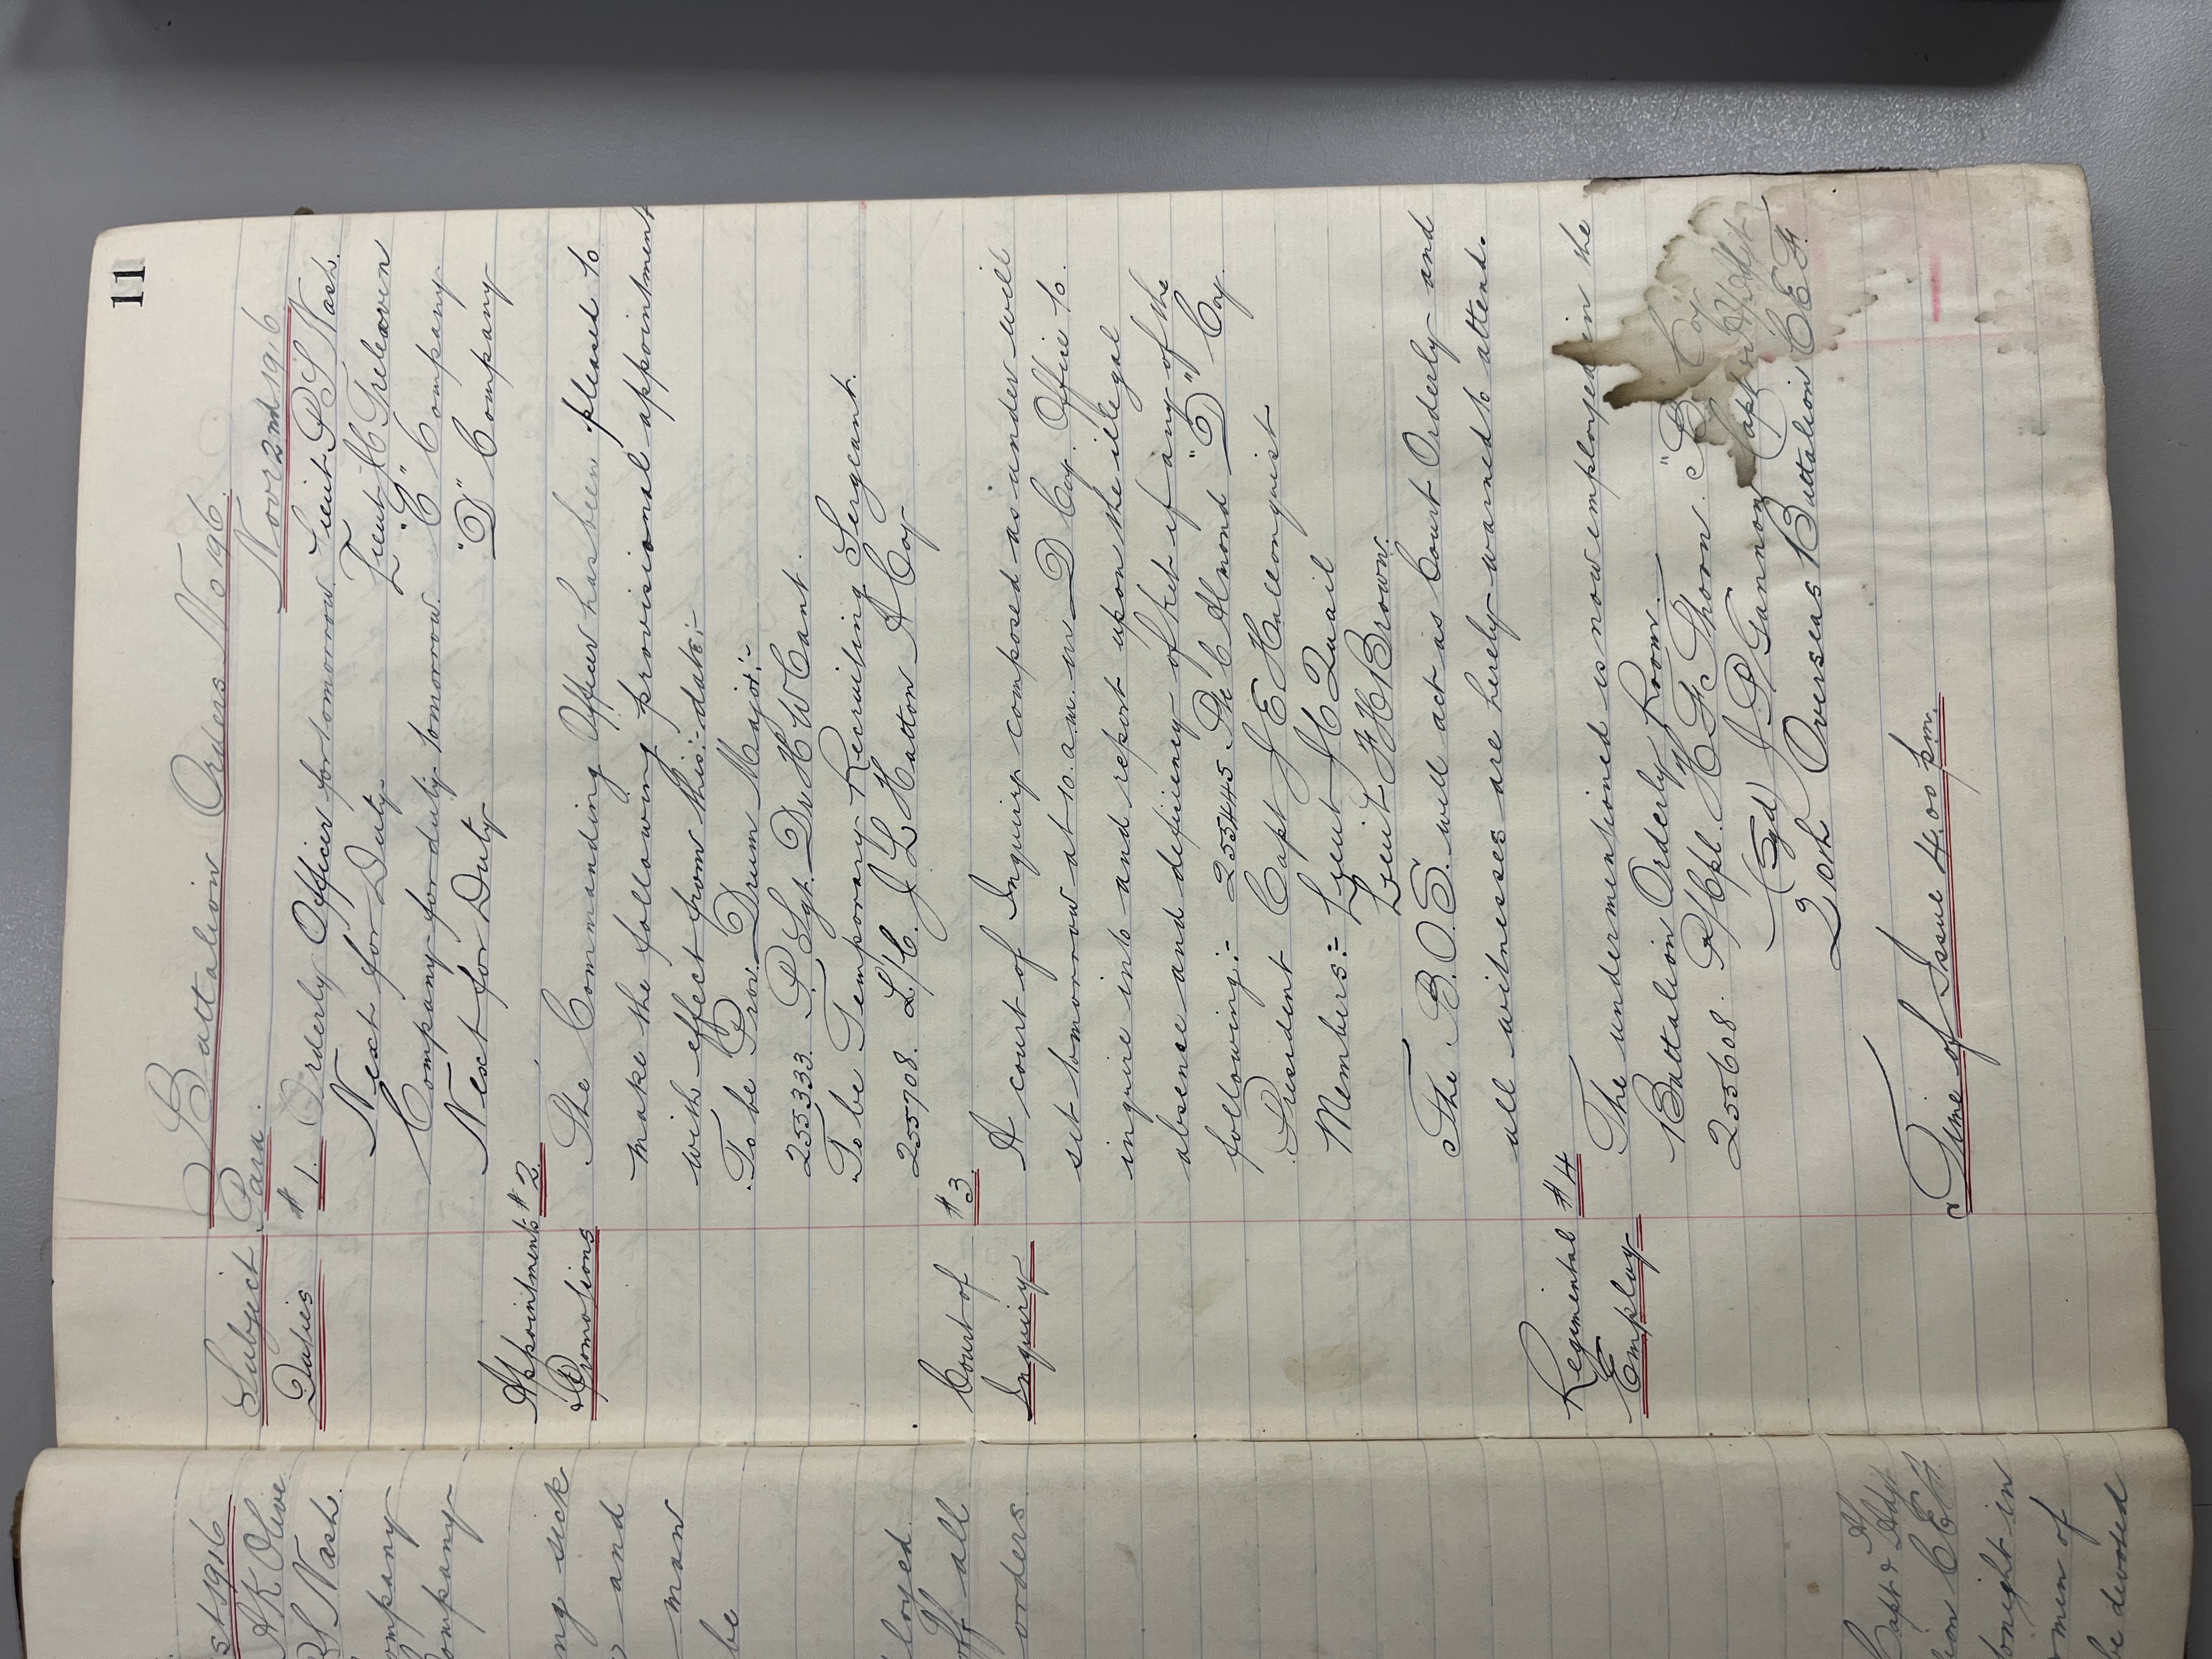 11
Battalion Orders No 196.
Subject Para. Nov 2nd 1916
Duties # 1. Orderly Officer for tomorrow. Lieut P S Nash.
Next for Duty Lieut H C Treleaven
Company for duty tomorrow. "C" Company
Next for Duty "D" Company
Appointments # 2.
& Promotions The Commanding Officer has been pleased to
make the following provisional appointment
with effect from this:- date:-
To be Prov. Drum Major:-
255333. P. Sgt. Dr H W Cant.
To be Temporary Recruiting Sergeant.
255708. L/C. J L Hatton A Coy
Court of # 3
Inquiry A court of Inquiry composed as under will
sit tomorrow at 10. a.m. in D Coy. Office to.
inquire into and report upon the illegal
absence and deficiency of Ket if any of the
following:- 255445. Pte C Almond "D" Coy.
President Capt J E Hallonquist
Members:- Lieut J C Quail
Lieut F H Brown.
The B.O.S. will act as Court Orderly and
all witnesses are hereby warned to attend.
Regimental # 4
Employ The undermentioned is now employed in the
Battalion Orderly Room.
255608. P/Cpl. H G Thorn. "B" Coy
(Sgd) J P Gannon Capt & Adjt
20th Overseas Battalion C E F.
Time of Issue 4.00 p.m.
st 1916
A K Olive
S Nash.
ompany
ompany
ng sick
and
man
be
loyed
off all
orders
Capt & Adjt
ion C E F.
tonight in
men of
be devoted